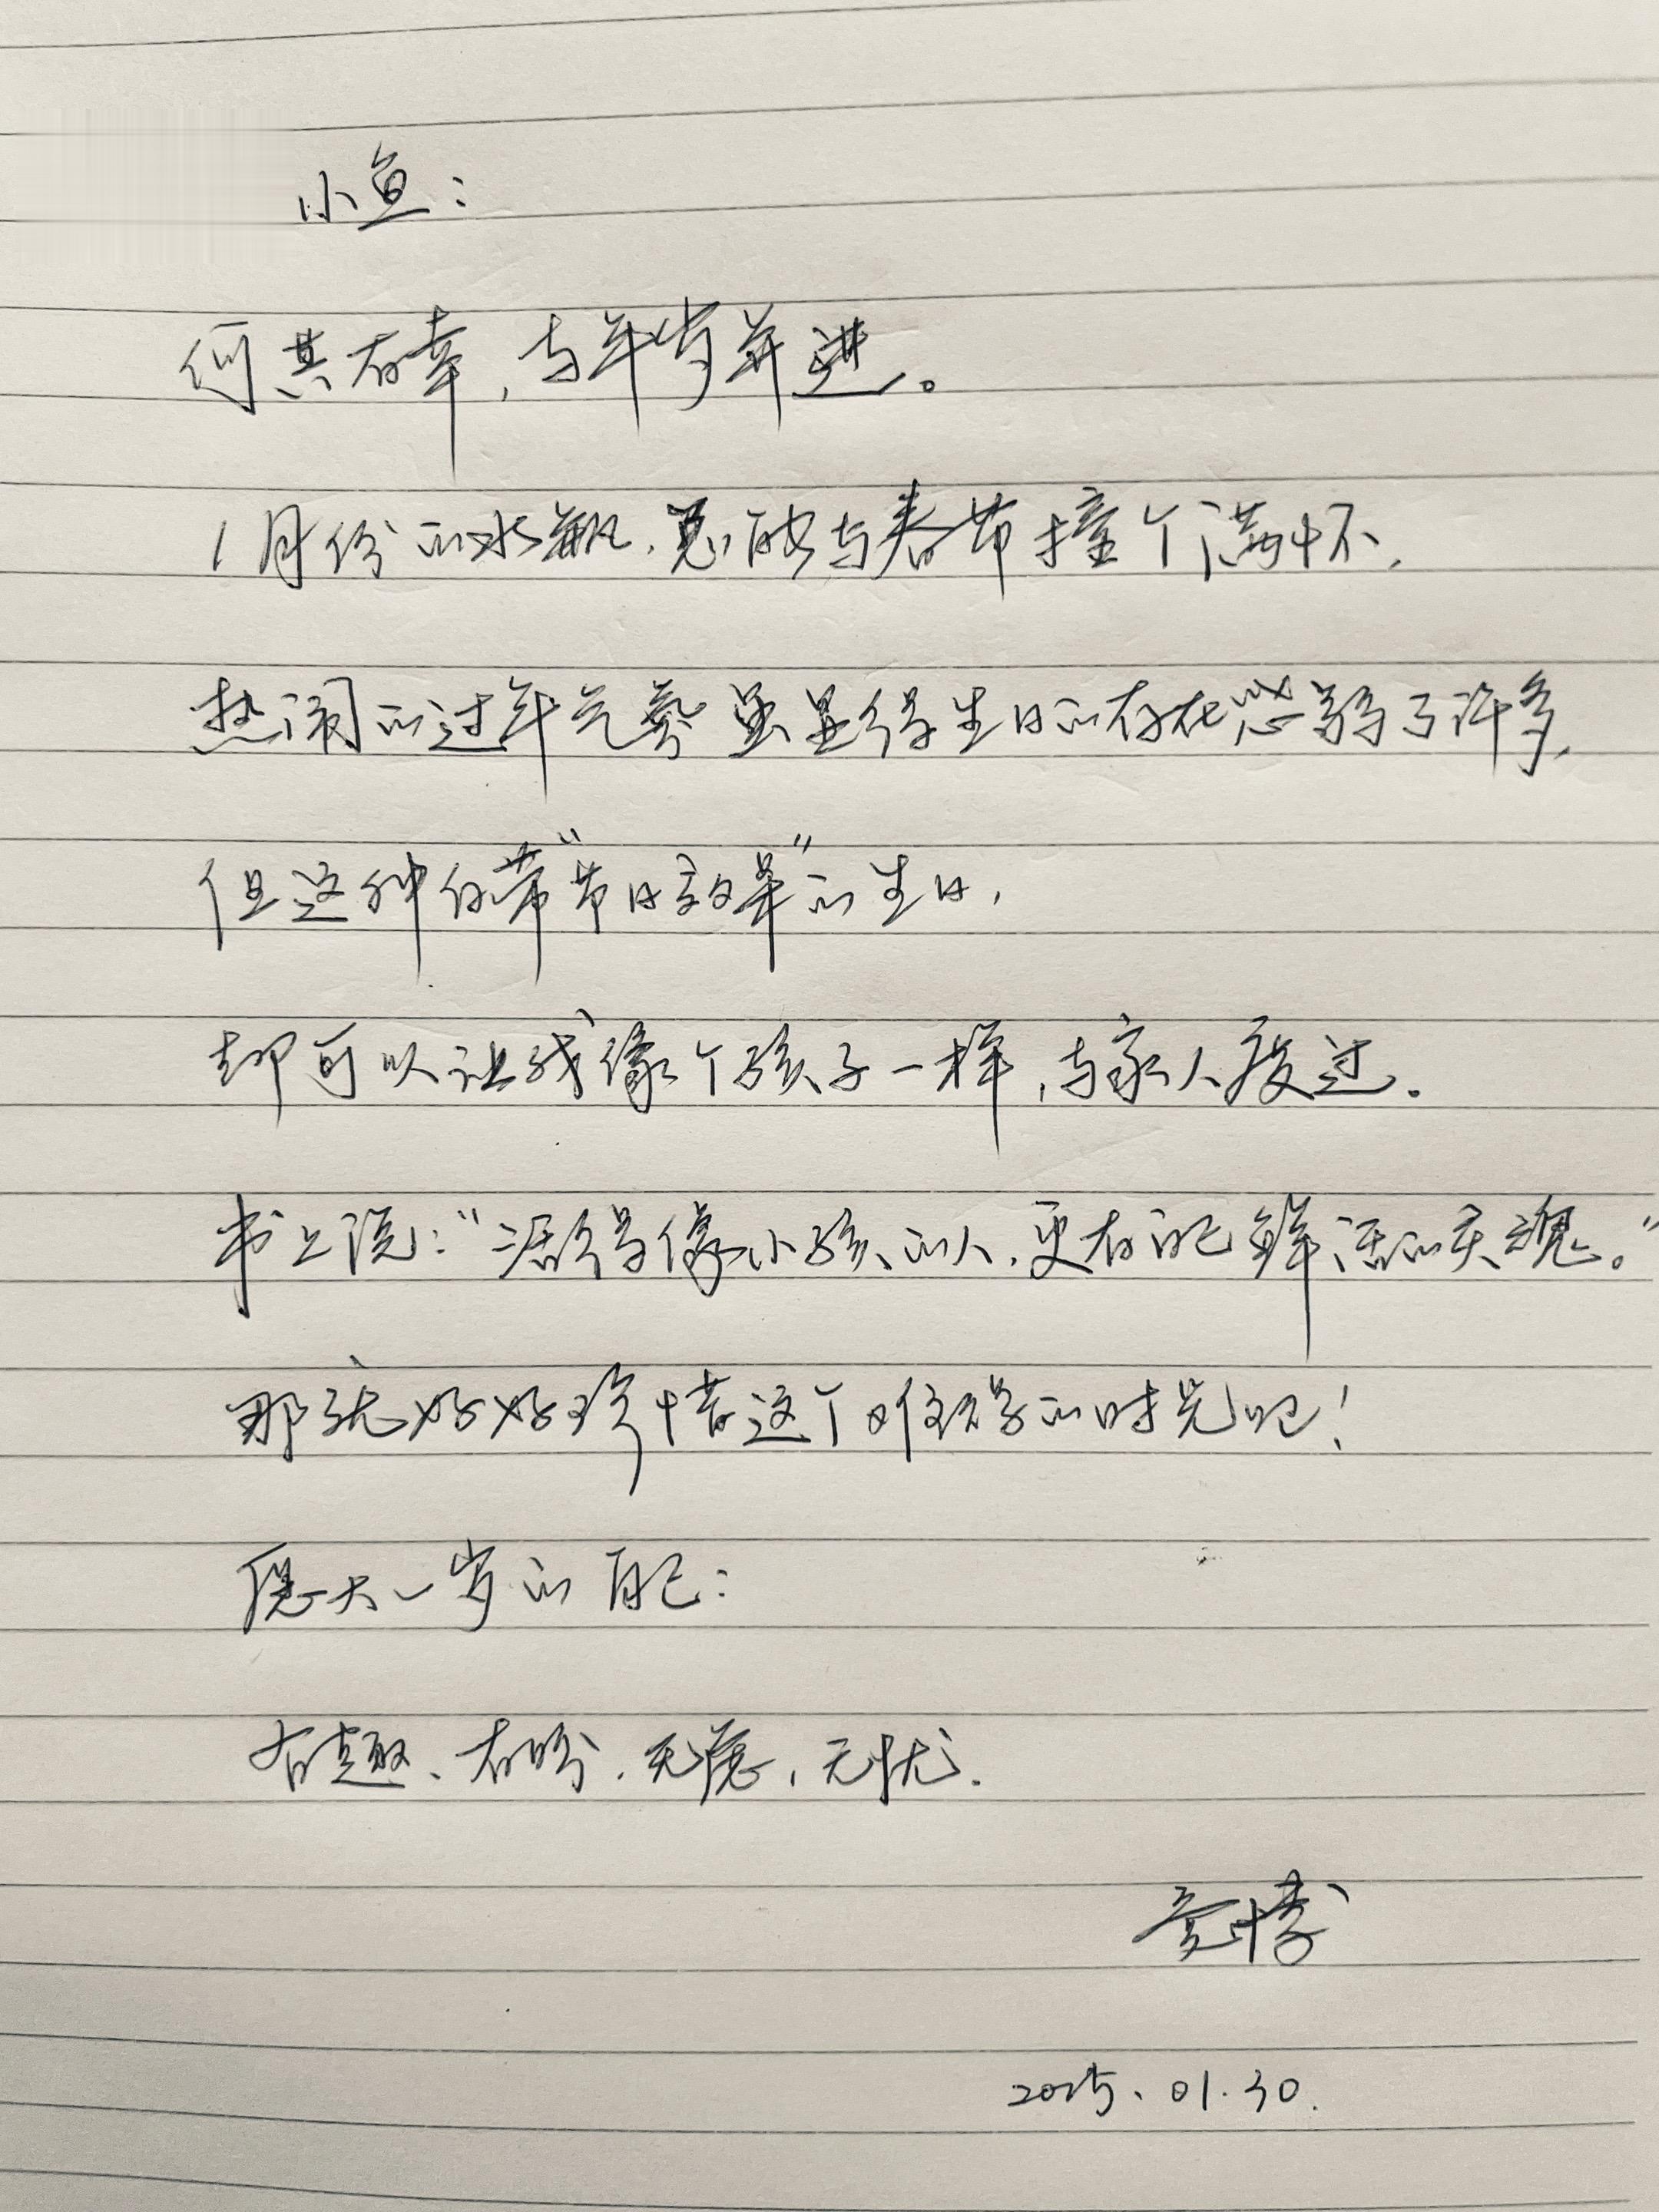 小鱼：
何其有幸，与年岁并进。
1月份的水瓶，总能与春节撞个满怀，
热闹的过年气氛虽显得生日的存在感弱了许多，
但这种自带“节日效果”的生日，
却可以让我像个孩子一样，与家人度过。
书上说：“活得像小孩的人，更有自己鲜活的灵魂。”
那就好好珍惜这个难得的时光吧！
愿大一岁的自己：
有趣、有盼、无恙、无忧。
2025.01.30.